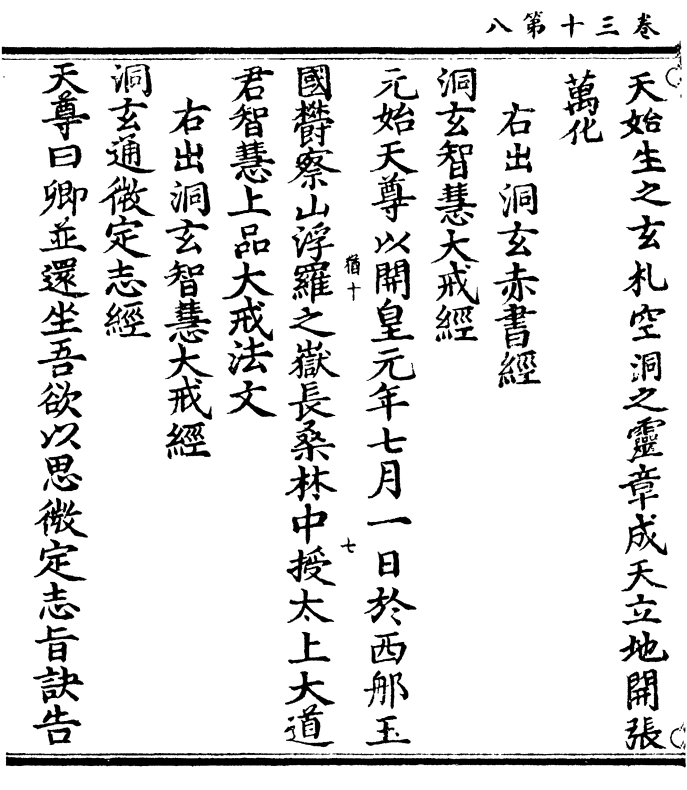 卷三十第八
天始生之玄札空洞之靈章成天立地開張
萬化
右出洞玄赤書經
洞玄智慧大戒經
元始天尊以開皇元年七月一日於西那玉
猶十
七
國欝察山浮羅之嶽長桑林中授太上大道
君智慧上品大戒法文
右出洞玄智慧大戒經
洞玄通微定志經
天尊曰卿並還坐吾欲以思微定志旨訣告